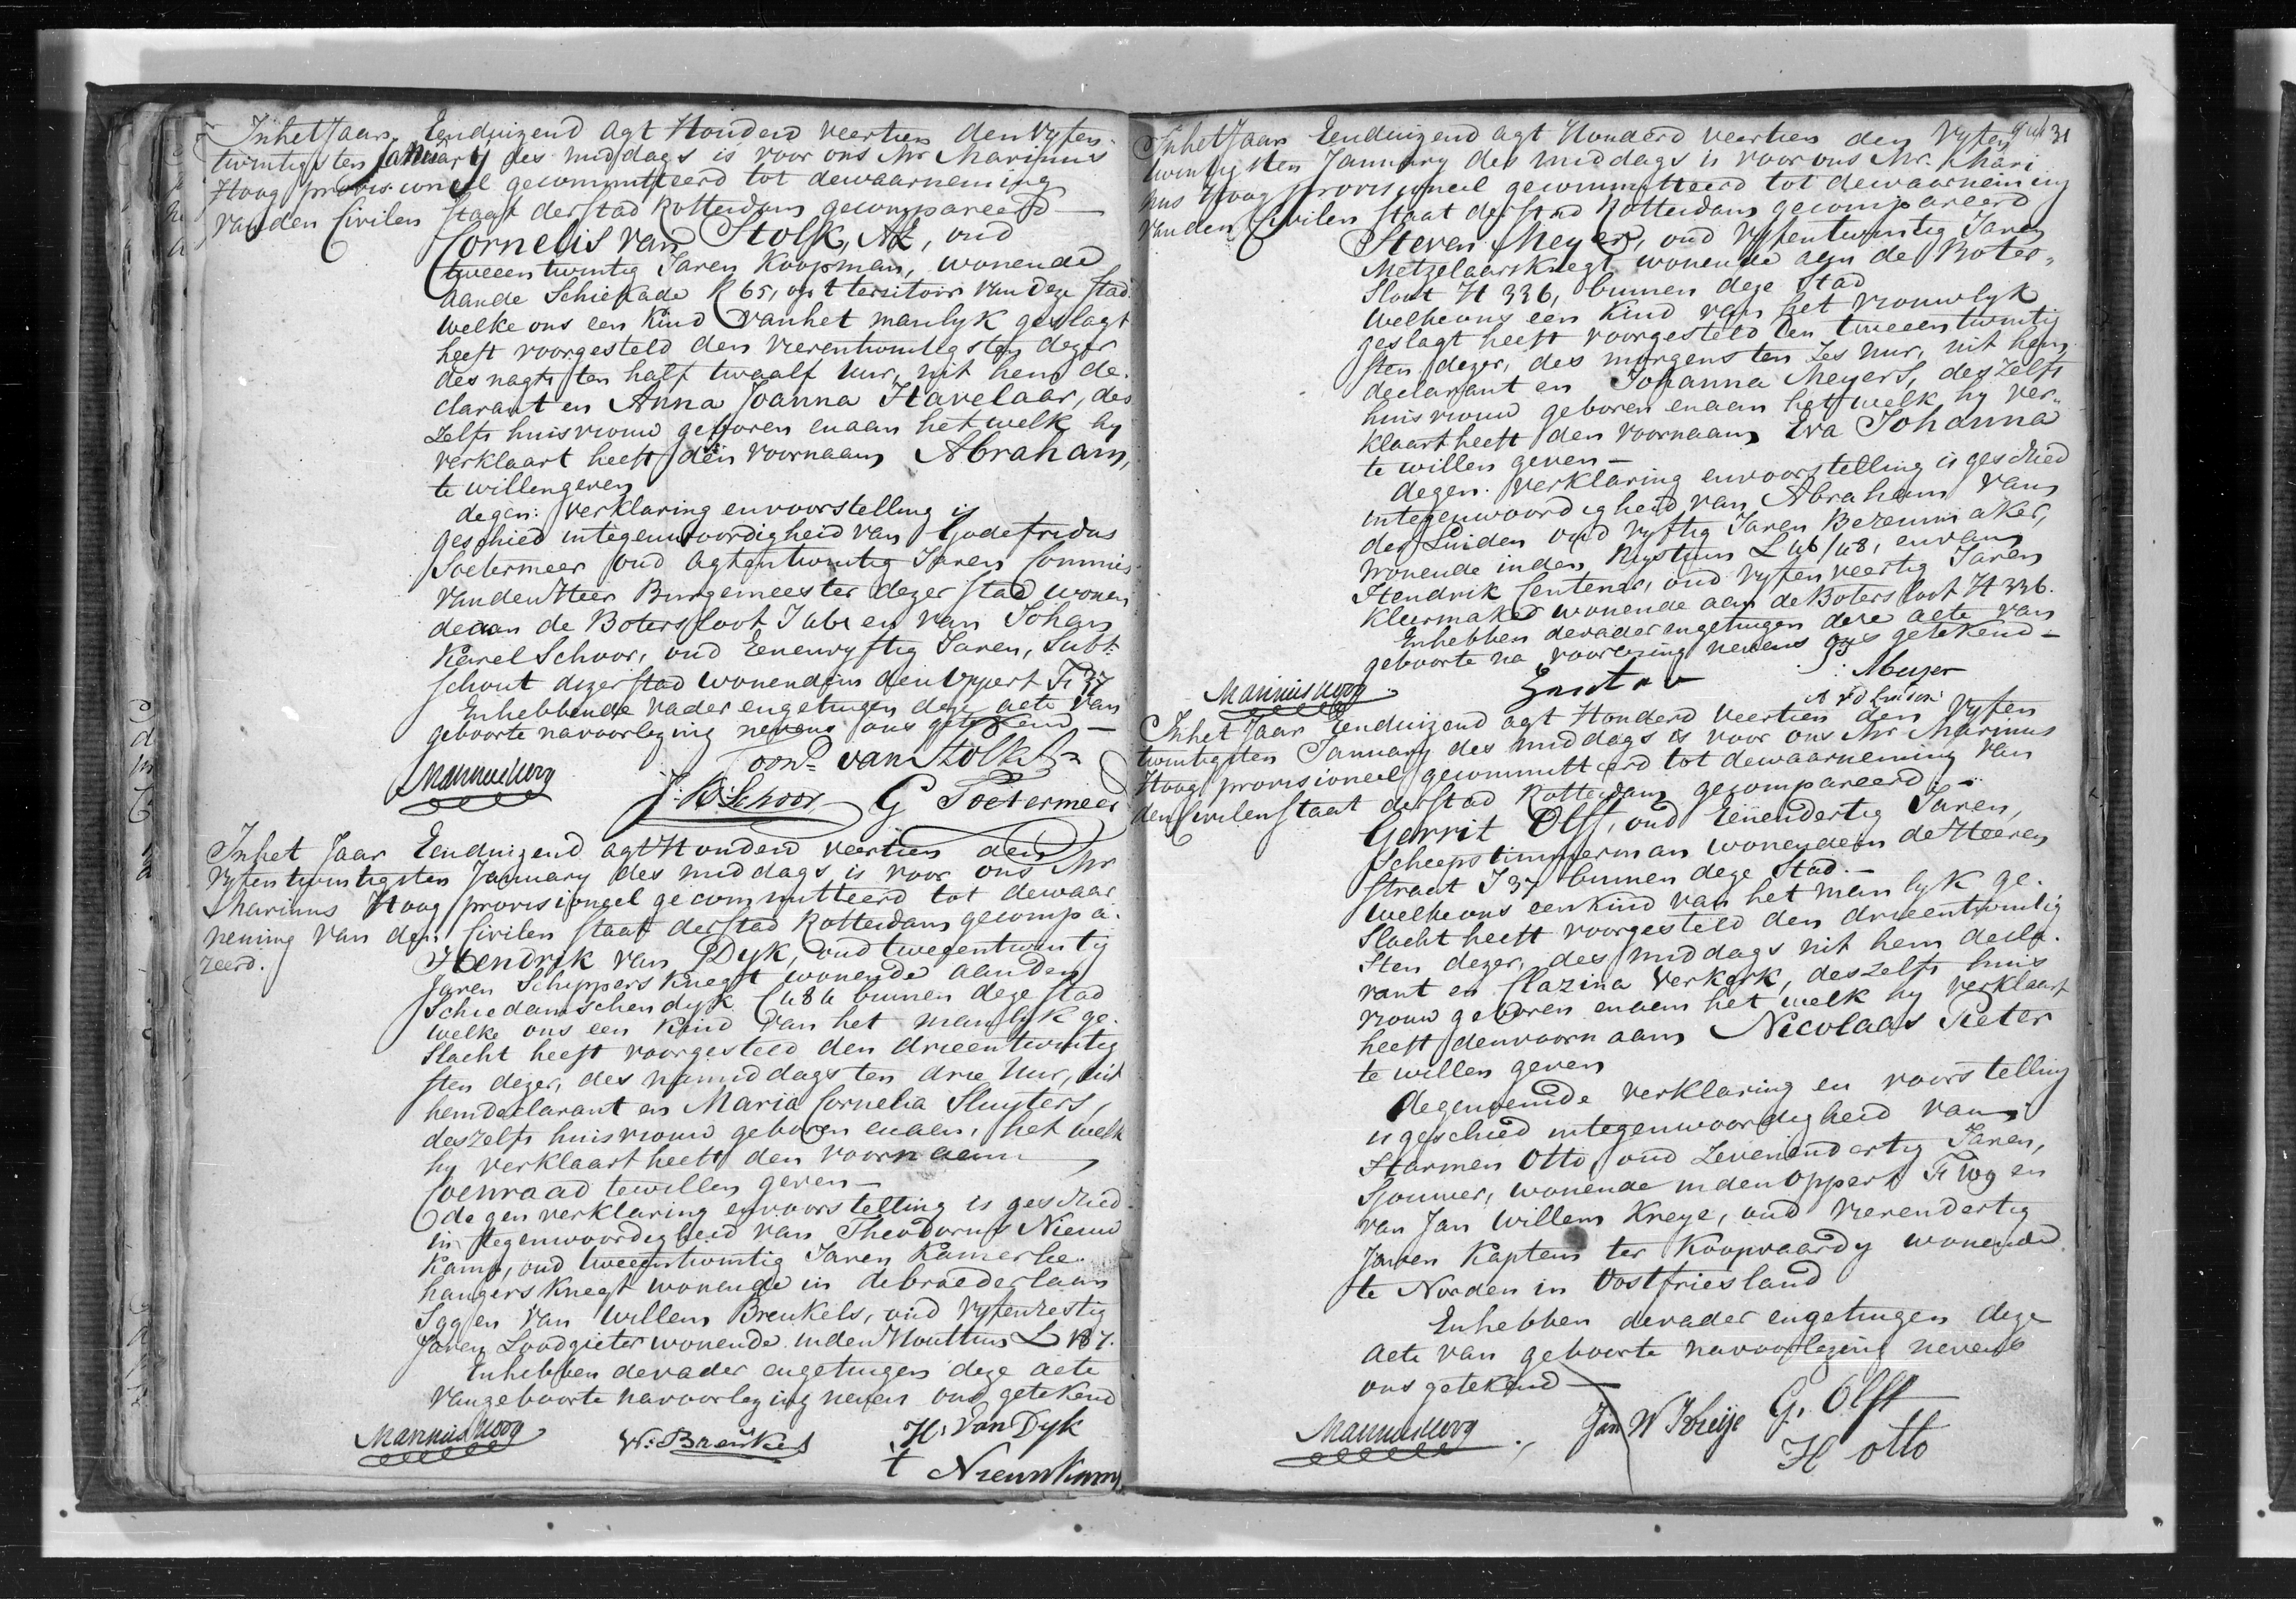 Inhet Jaar Eenduizend agt Honderd veertien den Vyfen
twintigsten January des middags is voor ons Mr Marinus
Hoog provisioneel gecommitteerd tot dewaarneming
van den Civilen Staat der Stad Rotterdam gecompareerd
Cornelis van Stolk, AZ, oud
tweeentwintig Jaren Koopman, wonende
aande Schiekade R 65, op t territoir van deze Stad
welke ons een Kind van het manlyk geslagt
heeft voorgesteld den vierentwintigsten dezer
des nagts ten half twaalf uur, uit hem de
clarant en Anna Joanna Havelaar, des
zelfs huisvrouw geboren enaan hetwelk hy
verklaart heeft den voornaam Abraham,
te willengeven
degen: verklaring envoorstelling is
geschied integenwoordigheid van Godefridus
Soetermeer oud agtentwintig Jaren Commies
van den Heer Burgemeester dezer Stad wonen
deaan de Botersloot I 461 en van Johan
Karel Schoor, oud Eenenvyftig Jaren, Subt:
Schout dezer Stad wonende in den Oppert F 37
Enhebbende vader engetuigen deze acte van
geboorte navoorlezing nevens ons getekend —
Corns. van Stolk Az
Marinus Hoog
J: K: Schoor G Soetermeer
Inhet Jaar Eenduizend agt Honderd veertien den
Vyfentwintigsten January des middags is voor ons Mr
Marinus Hoog provisioneel gecommitteerd tot dewaar
neming van den Civilen Staat der Stad Rotterdam gecompa-
reerd.
Hendrik van Dyk, oud tweeentwintig
Jaren Schippersknegt wonende aanden
Schiedamschendyk C 484 binnen deze Stad
welke ons een Kind van het manlyk ge-
slacht heeft voorgesteld den drieentwintig
sten dezer, des namiddags ten drie Uur, uit
hemdeclarant en Maria Cornelia Sluyters,
deszelfs huisvrouw geboren enaan, het welk
hy verklaart heeft den voornaam
Coenraad tewillen geven —
de gen verklaring envoorstelling is geschied
in tegenwoordigheid van Theodorus Nieuw
Kamp, oud tweeentwintig Jaren Kamerbe
hangersknegt wonende in debroederlaan
I 99 en van Willem Breukels, oud vyfenzestig
Jaren Loodgieter wonende inden Houttuin L 187.
Enhebben devader engetuigen deze acte
vangeboorte navoorlezing neven ons getekend
Marinus Hoog W: Breukels H: Van Dyk
t Nieuwkamp
31
Inhet Jaar Eenduizend agt Honderd veertien den Vyfen
twintigsten January des middags is voor ons Mr. Mari
nus Hoog provisioneel gecommitteerd tot dewaarneming
van den Civilen Staat der Stad Rotterdam gecompareerd
Steven Meyer, oud vyfentwintig Jaren
Metzelaarsknegt wonende aan de Boter-
sloot H 336, binnen deze Stad
Welkeons een Kind van het vrouwlyk
geslagt heeft voorgesteld den tweeentwintig
sten dezer, des morgens ten Zes uur, uit hem
declarant en Johanna Meyers, deszelfs
huisvrouw geboren enaan het welk hy ver-
klaart heeft den voornaam Eva Johanna
te willen geven —
degen. verklaring envoorstelling is geschied
integenwoordigheid van Abraham van
der Linden oud vyftig Jaren Bezemmaker,
wonende inden Rystuin L 46/48, envan
Hendrik Centener, oud vyfenveertig Jaren
Kleermaker wonende aan de Botersloot H 336.
Enhebben devader engetuigen deze acte van
geboorte na voorlezing nevens ons getekend —
Marinus Hoog S: Meyer
Inhet Jaar Eenduizend agt Honderd veertien den Vyfen
twintigsten January des middags is voor ons Mr Marinus
Hoog provisioneel gecommitteerd tot dewaarneming van
den Civilen Staat der Stad Rotterdam gecompareerd —
Gerrit Olff, oud Eenendertig Jaren,
Scheepstimmerman wonendein de Heeren
straat I 37 binnen deze Stad. —
Welkeons eenkind van het manlyk ge-
slacht heeft voorgesteld den drieentwintig
sten dezer, des middags uit hem decla-
rant en Clazina Verkerk, deszelfs huis
vrouw geboren enaan het welk hy verklaart
heeft denvoornaam Nicolaas Pieter
te willen geven
degenoemde verklaring en voorstelling
is geschied integenwoordigheid van
Harmen Otto, oud Zevenendertig Jaren,
Sjouwer, wonende inden Oppert F 109 en
van Jan Willem Kreye, oud vierendertig
Jaren Kaptein ter Koopvaardy wonende
te Norden in Oostfriesland
Enhebben devader engetuigen deze
acte van geboorte navoorlezing nevens
ons getekend —
Marinus Hoog Jan W Kreije G. Olff
H otto